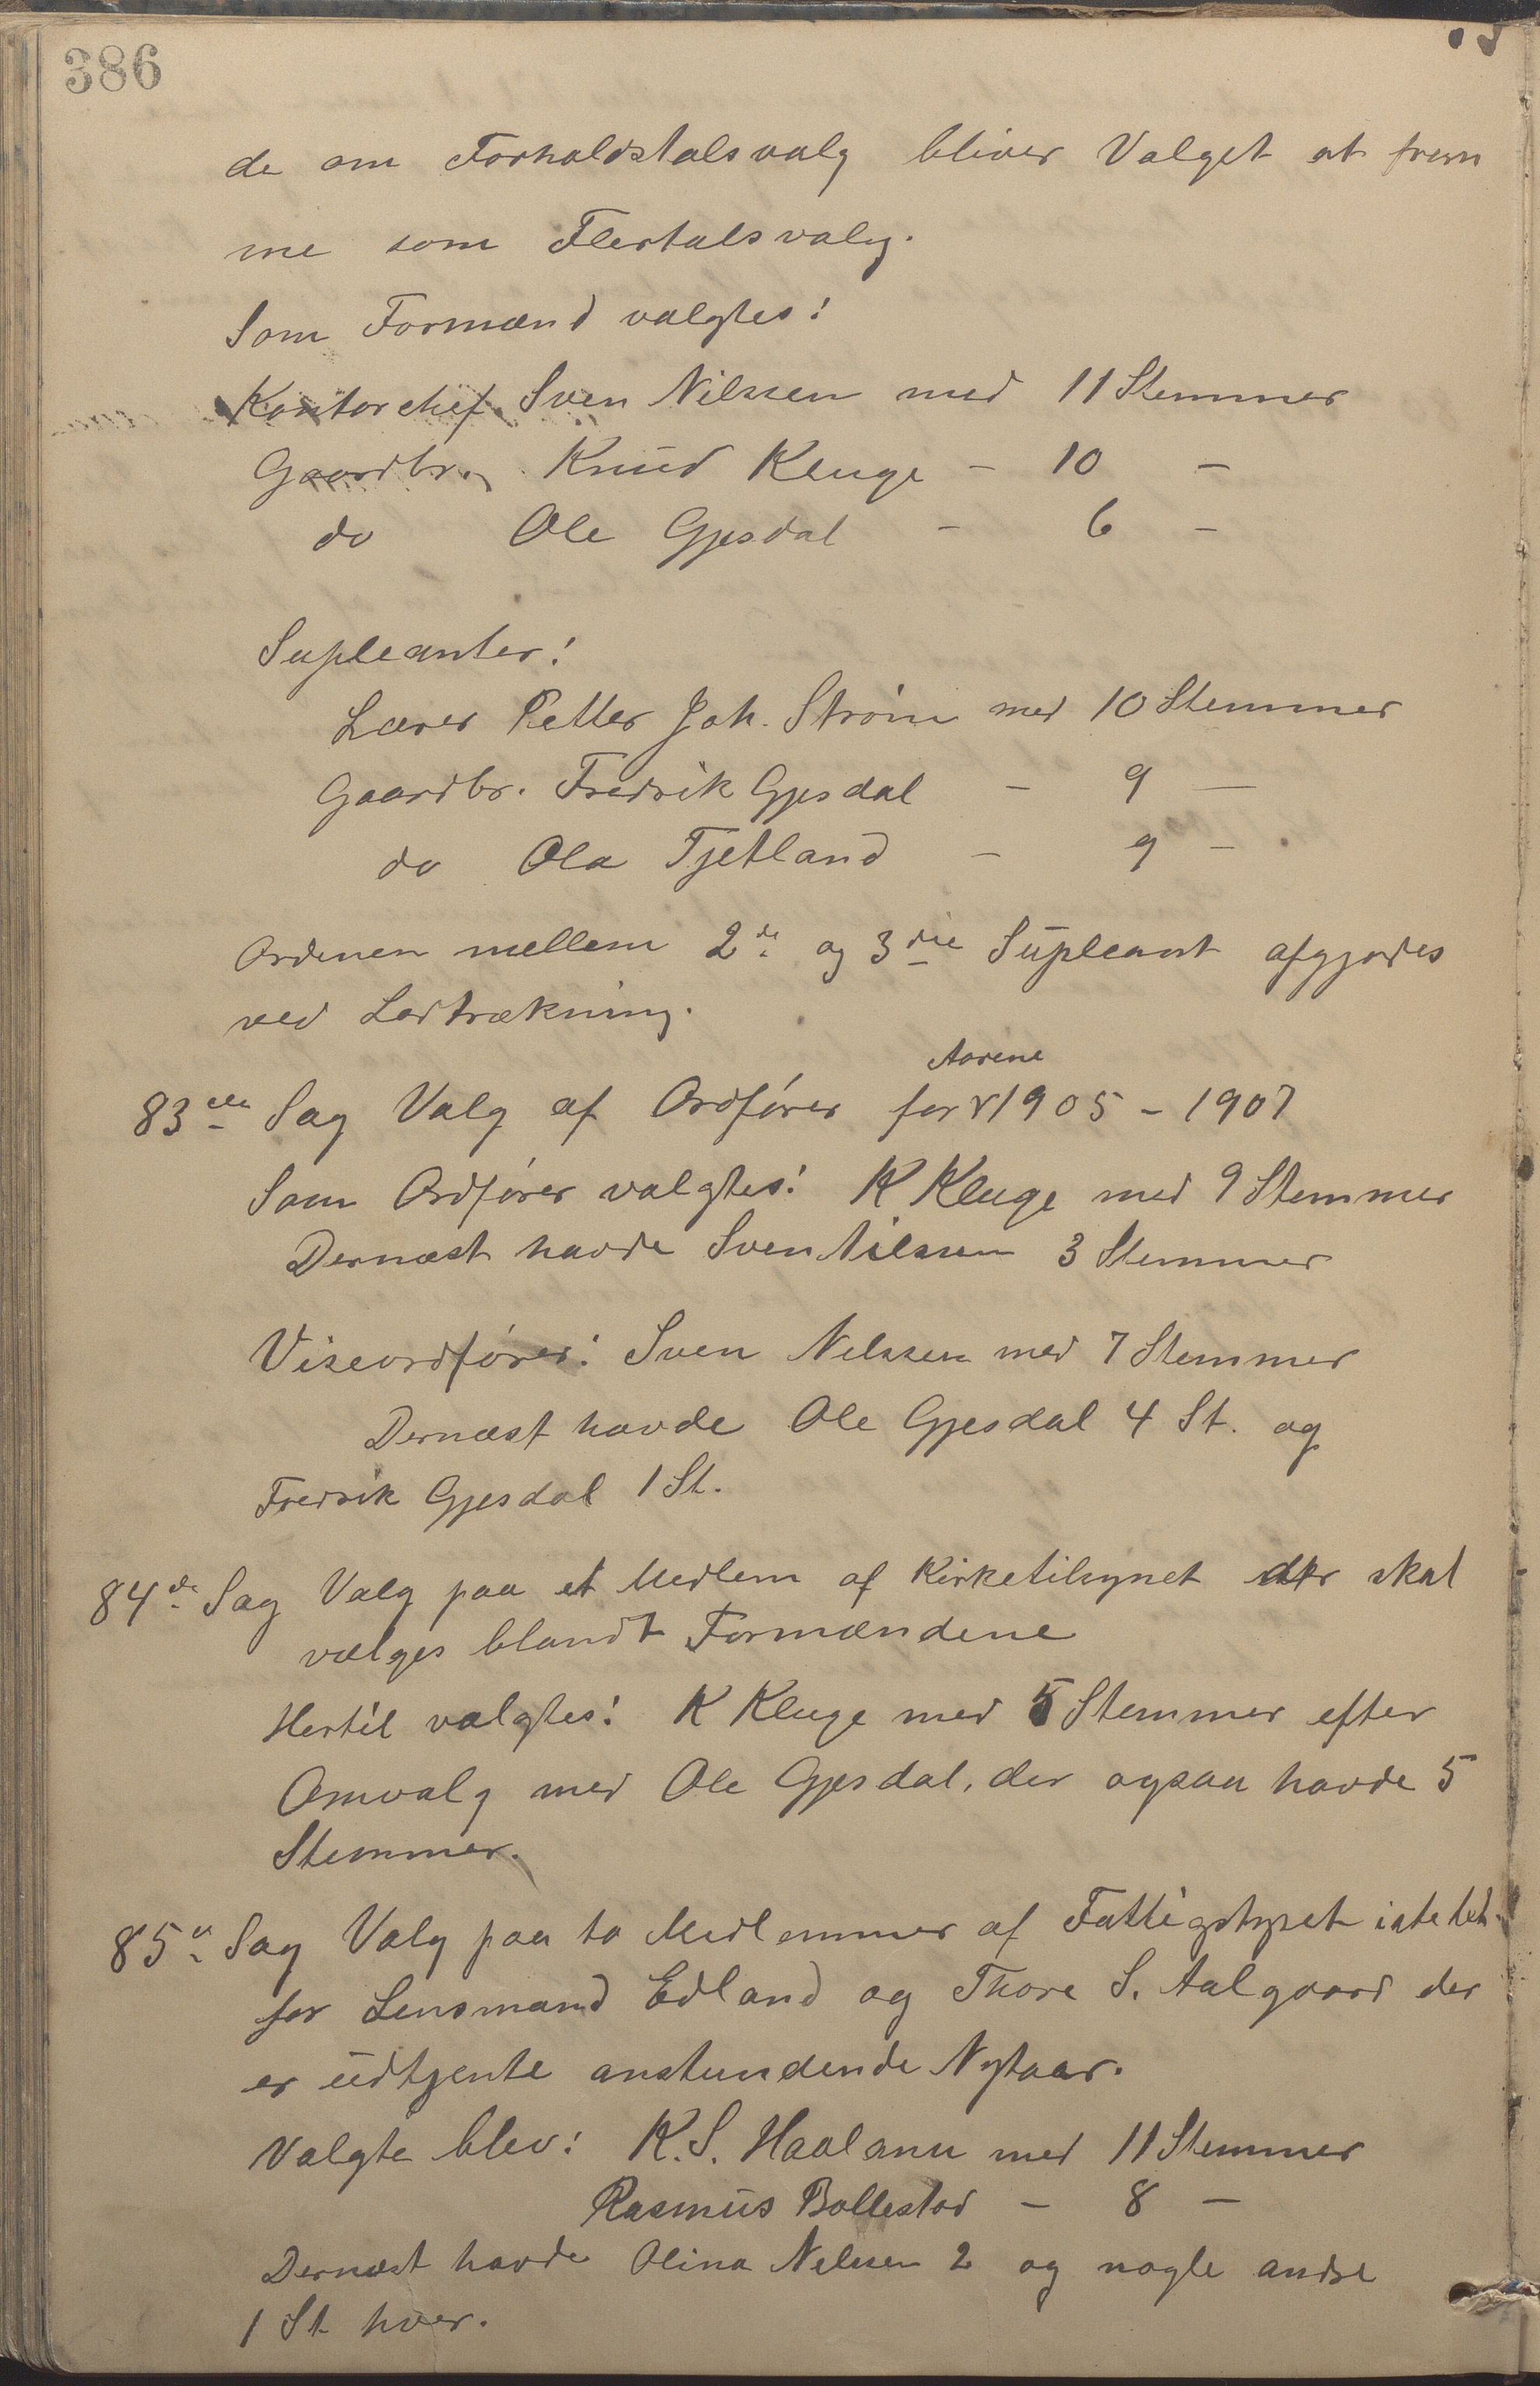 386
de om Forholdstalsvalg bliver Valget at frem
me som Flertalsvalg.
Som Formænd valgtes:
Kontorchef Sven Nilssen med 11 Stemmer
Gaardbr. Knud Kluge - 10 -
do Ole Gjesdal - 6 -
Supleanter:
Lærer Petter Joh. Strøm med 10 Stemmer
Gaardbr. Fredrik Gjesdal - 9 -
do Ola Tjetland - 9 -
Ordenen mellem 2de og 3die Supleant afgjordes
ved Lodtrækning.
Aarene
83de Sag Valg af Ordfører for 1905 - 1907
Som Ordfører valgtes: K Kluge med 9 Stemmer
Dernæst havde Sven Nilssen 3 Stemmer
Viseordfører: Sven Nilssen med 7 Stemmer
Dernæst havde Ole Gjesdal 4 St. og
Fredrik Gjesdal 1 St.
84de Sag Valg paa et Medlem af Kirketilsynet der skal
vælges blandt Formændene
Hertil valgtes: K Kluge med 5 Stemmer efter
Omvalg med Ole Gjesdal, der ogsaa havde 5
Stemmer.
85de Sag Valg paa to Medlemmer af Fattigstyret istedet
for Lensmand Edland og Thore S. Aalgaard der
er udtjente anstundende Nytaar.
Valgte blev: K. S. Haaland med 11 Stemmer
Rasmus Bollestad - 8 -
Dernæst havde Olina Nilssen 2 og nogle andre
1 St hver.